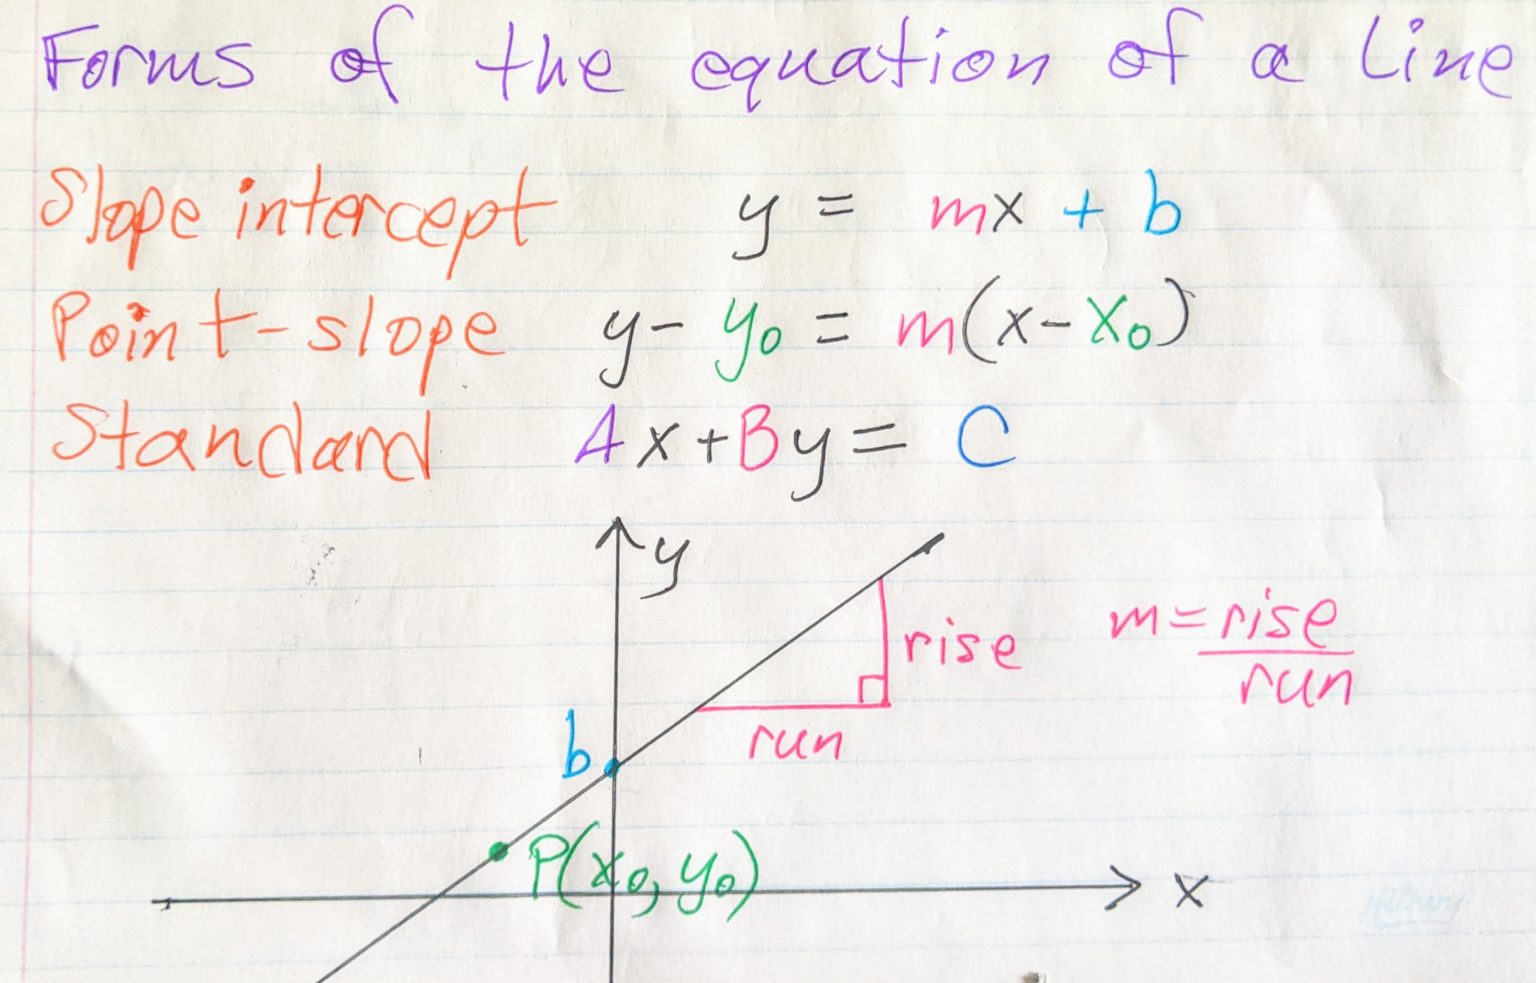 Forms of the equation of a line
Slope intercept y = mx + b
Point-slope y - y₀ = m(x - x₀)
Standard Ax + By = C
y
rise
m = rise
run
run
b
P(x₀, y₀)
x